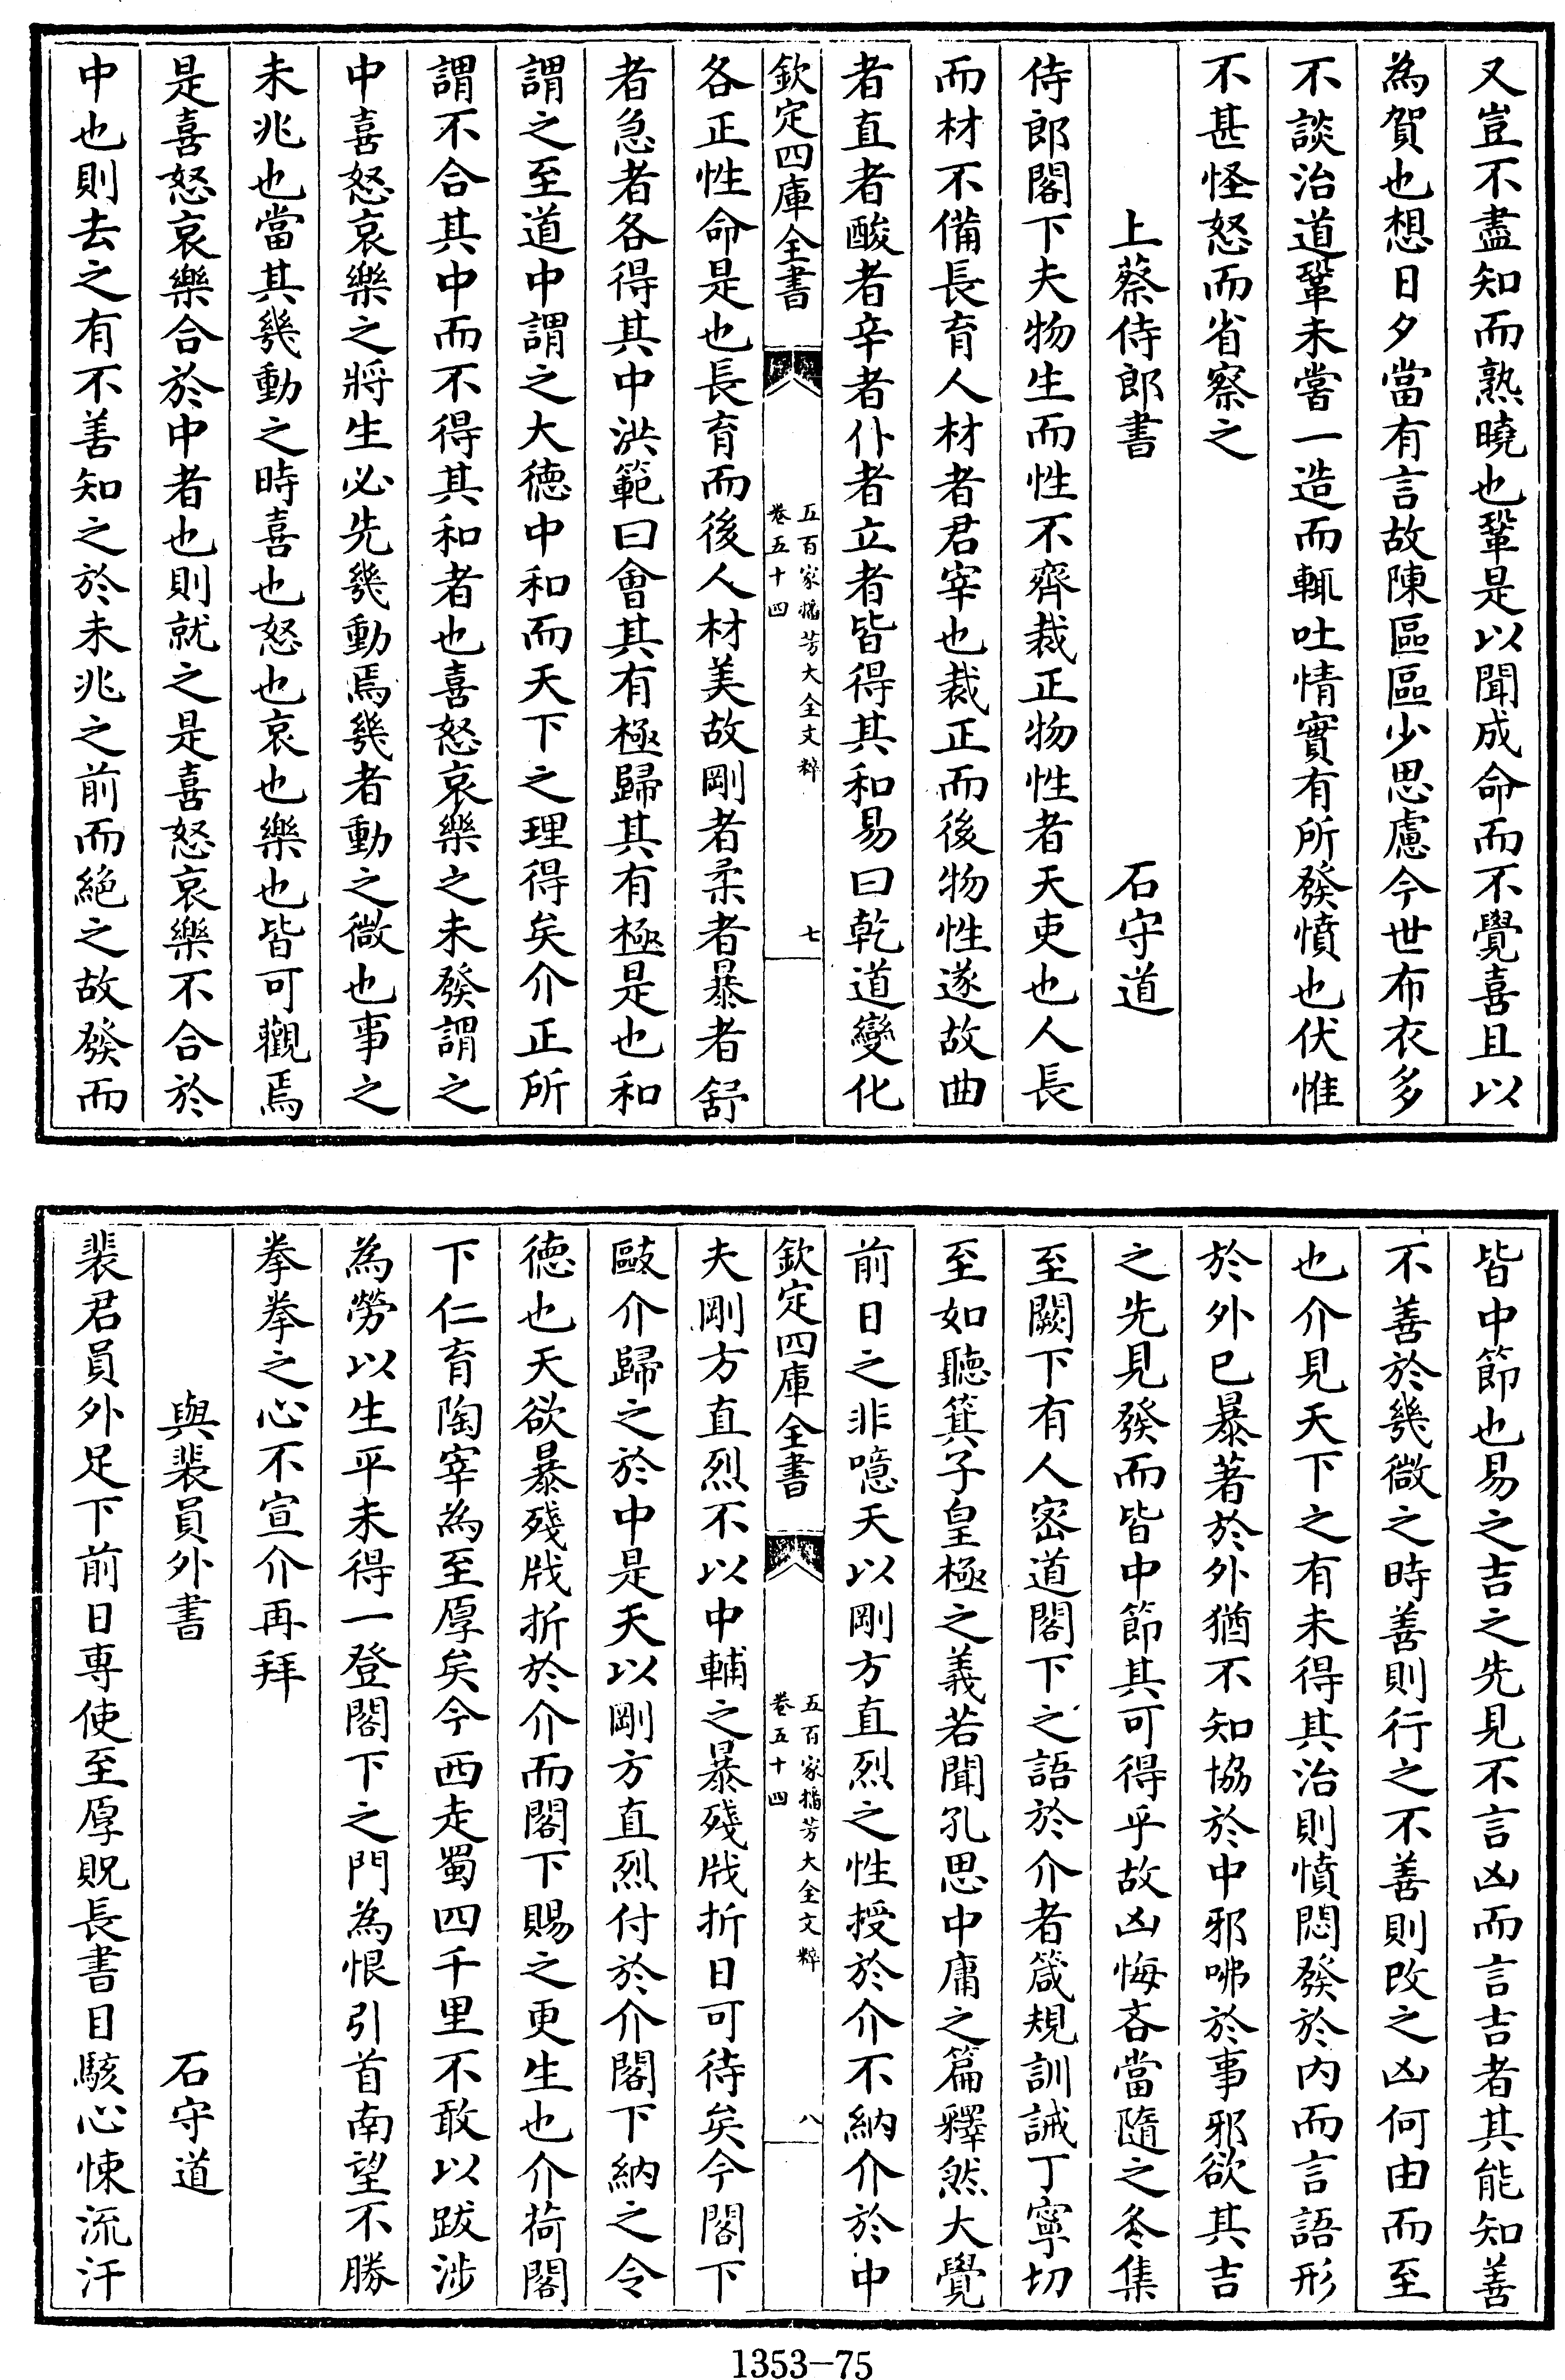 又豈不盡知而熟曉也鞏是以聞成命而不覺喜且以
為賀也想日夕當有言故陳區區少思慮今世布衣多
不談治道鞏未嘗一造而輒吐情實有所發憤也伏惟
不甚怪怒而省察之
上蔡侍郎書　石守道
侍郎閣下夫物生而性不齊裁正物性者天吏也人長
而材不備長育人材者君宰也裁正而後物性遂故曲
者直者酸者辛者仆者立者皆得其和易曰乾道變化
欽定四庫全書　五百家播芳大全文粹　卷五十四　七
各正性命是也長育而後人材美故剛者柔者暴者舒
者急者各得其中洪範曰會其有極歸其有極是也和
謂之至道中謂之大德中和而天下之理得矣介正所
謂不合其中而不得其和者也喜怒哀樂之未發謂之
中喜怒哀樂之將生必先幾動焉幾者動之微也事之
未兆也當其幾動之時喜也怒也哀也樂也皆可觀焉
是喜怒哀樂合於中者也則就之是喜怒哀樂不合於
中也則去之有不善知之於未兆之前而絕之故發而
皆中節也易之吉之先見不言凶而言吉者其能知善
不善於幾微之時善則行之不善則改之凶何由而至
也介見天下之有未得其治則憤悶發於內而言語形
於外已暴著於外猶不知協於中邪咈於事邪欲其吉
之先見發而皆中節其可得乎故凶悔吝當隨之冬集
至闕下有人密道閣下之語於介者箴規訓誡丁寧切
至如聽箕子皇極之義若聞孔思中庸之篇釋然大覺
前日之非噫天以剛方直烈之性授於介不納介於中
欽定四庫全書　五百家播芳大全文粹　卷五十四　八
夫剛方直烈不以中輔之暴殘戕折日可待矣今閣下
敺介歸之於中是天以剛方直烈付於介閣下納之令
德也天欲暴殘戕折於介而閣下賜之更生也介荷閣
下仁育陶宰為至厚矣今西走蜀四千里不敢以跋涉
為勞以生平未得一登閣下之門為恨引首南望不勝
拳拳之心不宣介再拜
與裴員外書　石守道
裴君員外足下前日專使至厚貺長書目駭心悚流汗
1353-75